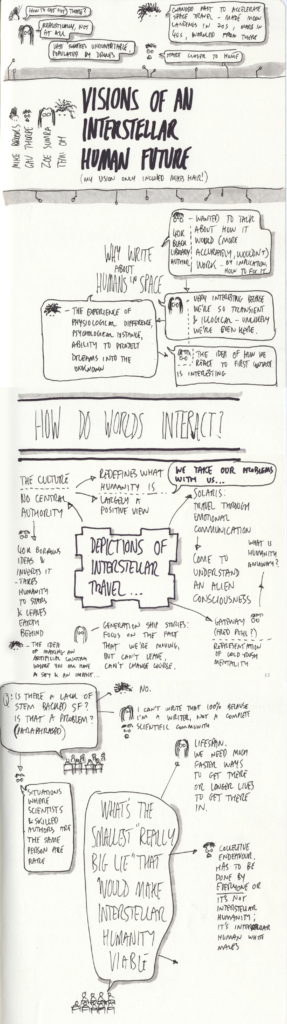 HOW TO GET THERE?
REPULSIVELY, NOT
AT ALL
CHANGED PAST TO ACCELERATE
SPACE TRAVEL - MADE MOON
LANDINGS IN 20S, MARS IN
40S, WORKED FROM THERE
START CLOSER TO HOME
MIKE BROOKS
GAV THORPE
ZOE SUMRA
TEJM OM
VISIONS OF AN
INTERSTELLAR
HUMAN FUTURE
(MY VISION ONLY INCLUDED HAIR!)
WHY WRITE
ABOUT
HUMANS IN SPACE
GOR
BLACK
LIBRARY
AUTHOR
- WANTED TO TALK
ABOUT HOW IT
WOULD (MORE
ACCURATELY, WOULDN'T)
WORK - BY IMPLICATION
HOW TO FIX IT.
- THE EXPERIENCE OF
PHYSIOLOGICAL DIFFERENCE,
PSYCHOLOGICAL DISTANCE,
ABILITY TO PROJECT
DREAMS INTO THE
UNKNOWN
VERY INTERESTING BECAUSE
WE'RE SO TRANSIENT
& ILLOGICAL - UNLIKELY
WE'RE EVEN HERE.
THE IDEA OF HOW WE
REACT TO FIRST CONTACT
IS INTERESTING
HOW DO WORLDS INTERACT?
WE TAKE OUR PROBLEMS
WITH US...
THE CULTURE
NO CENTRAL
AUTHORITY
REDEFINES WHAT
HUMANITY IS
LARGELY A
POSITIVE VIEW
SOLARIS:
TRAVEL THROUGH
EMOTIONAL
COMMUNICATION
COME TO
UNDERSTAND
AN ALIEN
CONSCIOUSNESS
WHAT IS
HUMANITY
ANYWAY?
DEPICTIONS OF
INTERSTELLAR
TRAVEL...
GOR BORROWS
IDEAS &
INVERTS IT
- TAKES
HUMANITY
TO STARS
& LEAVES
EARTH
BEHIND
- THE IDEA
OF MAKING AN
ARTIFICIAL
GENERATION SHIP STORIES:
FOCUS ON THE FACT
THAT WE'RE MOVING,
BUT CAN'T LEAVE,
CAN'T CHANGE COURSE.
GATEWAY
(FRED POHL?)
REPRESENTATION
OF GOLD RUSH
MENTALITY
Q: IS THERE A LACK OF
STEM BACKED SF?
IS THAT A PROBLEM?
(PARAPHRASED)
NO.
I CAN'T WRITE THAT 100% BECAUSE
I'M A WRITER, NOT A COMPLETE
SCIENTIFIC COMMUNITY
SITUATIONS
WHERE
SCIENTISTS
& SKILLED
AUTHORS ARE
THE SAME
PERSON ARE
RARE
LIFESPAN.
WE NEED MUCH
FASTER WAYS
TO GET THERE
OR LONGER LIVES
TO GET THERE
IN.
WHAT'S THE
SMALLEST "REALLY
BIG LIE" THAT
WOULD MAKE
INTERSTELLAR
HUMANITY
VIABLE
COLLECTIVE
ENDEAVOUR.
HAS TO BE
DONE BY
EVERYONE OR
IT'S NOT
INTERSTELLAR
HUMANITY;
IT'S INTERSTELLAR
HUMAN WHITE
MALES